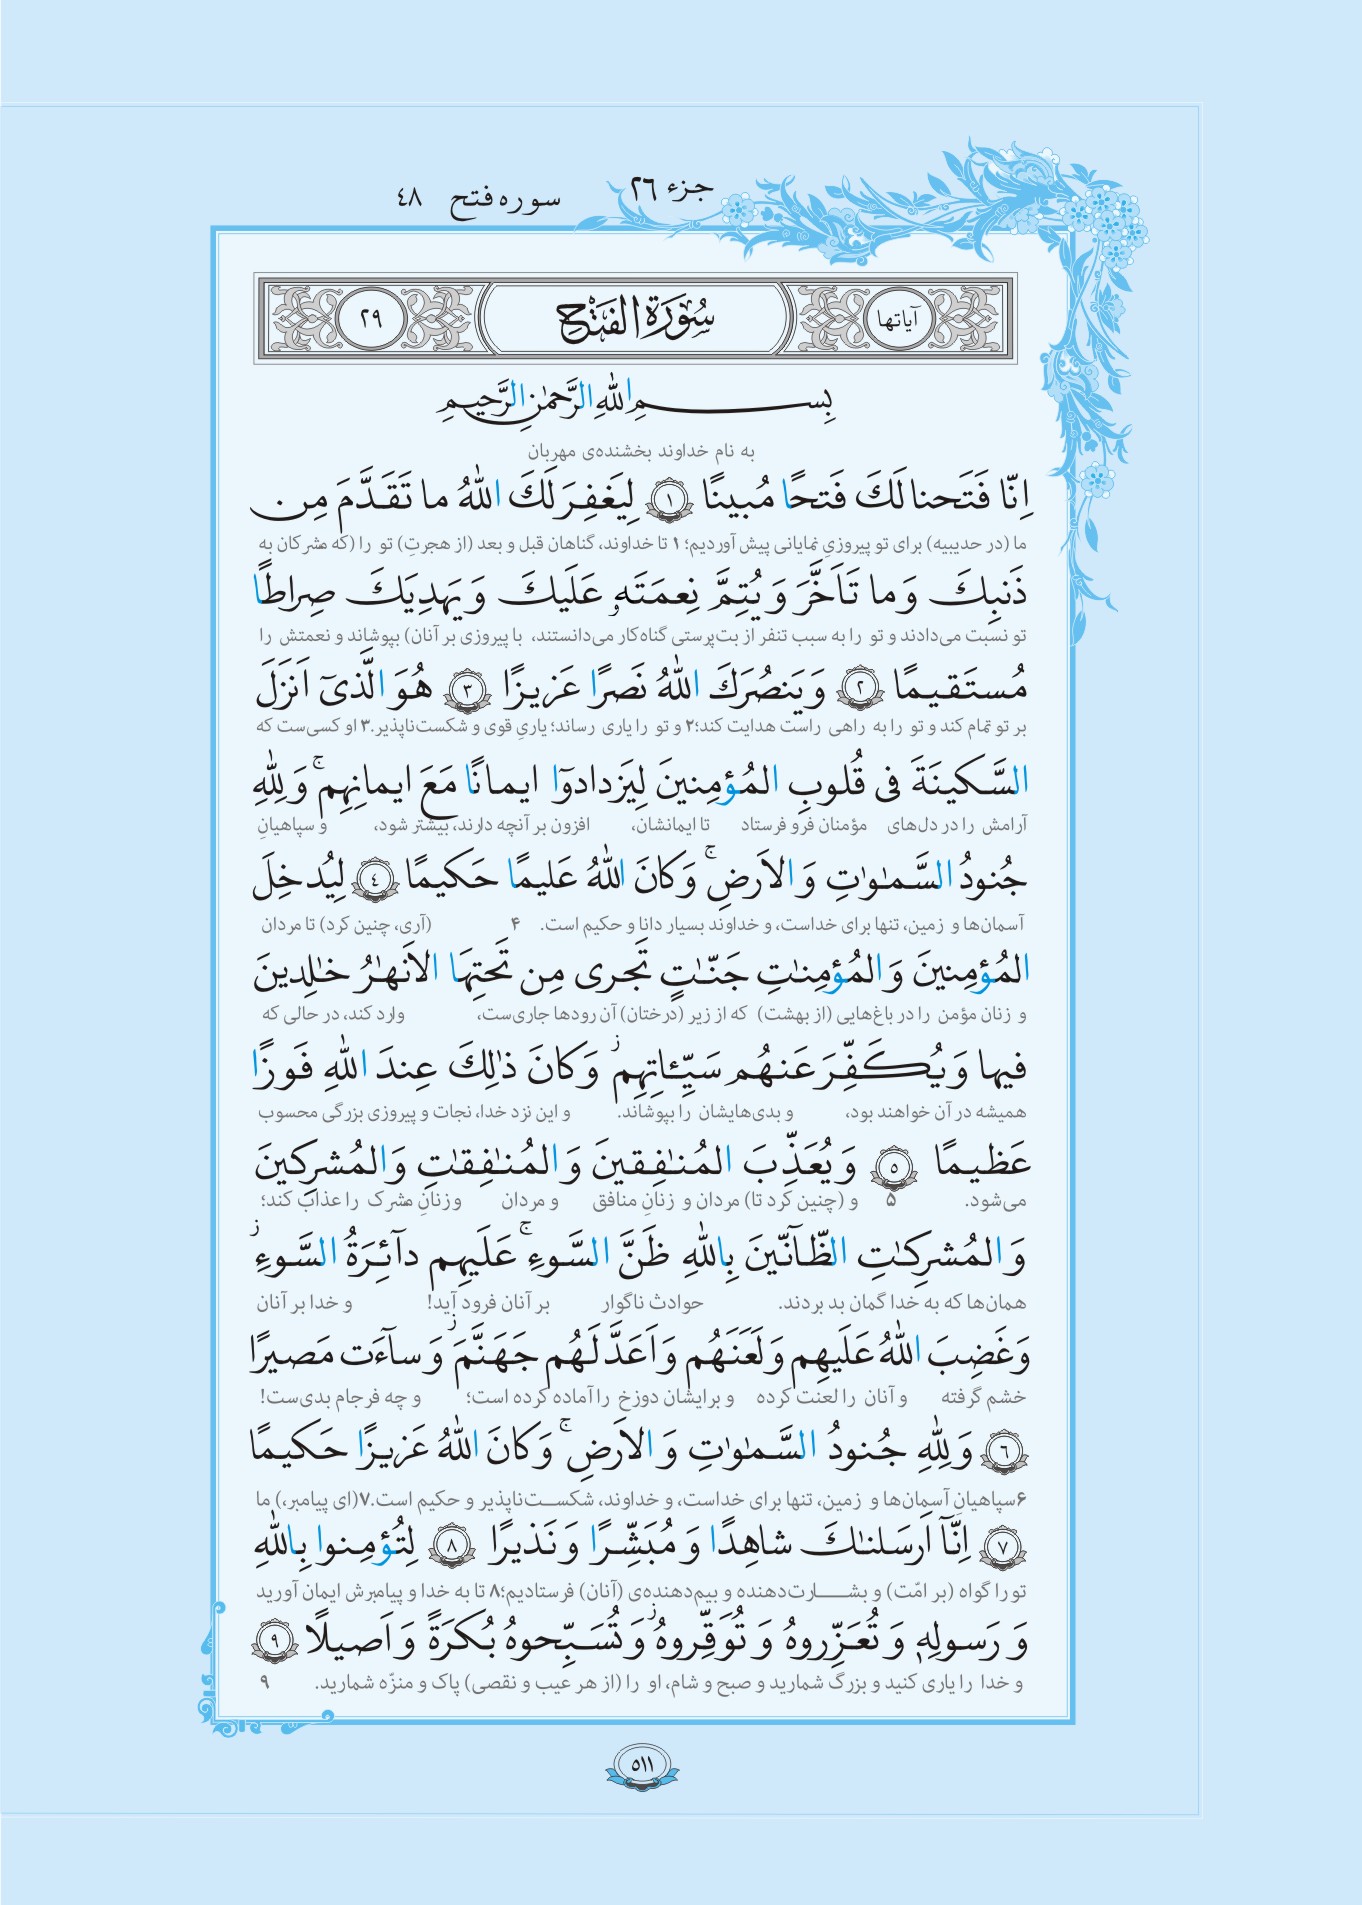 جزء ۲۶
سوره فتح ۴۸
آیاتها
سُورَةُ الفَتْحِ
۲۹
بِسمِ اللّٰهِ الرَّحمٰنِ الرَّحیمِ
به نام خداوند بخشنده‌ی مهربان
اِنّا فَتَحنا لَكَ فَتحًا مُبینًا ﴿۱﴾ لِیَغفِرَ لَكَ اللّٰهُ ما تَقَدَّمَ مِن
ما (در حدیبیه) برای تو پیروزیِ نمایانی پیش آوردیم؛ ۱ تا خداوند، گناهان قبل و بعد (از هجرتِ) تو را (که مشرکان به
ذَنبِكَ وَ ما تَاَخَّرَ وَ یُتِمَّ نِعمَتَهٗ عَلَیكَ وَ یَهدِیَكَ صِراطًا
تو نسبت می‌دادند و تو را به سبب تنفر از بت‌پرستی گناه‌کار می‌دانستند، با پیروزی بر آنان) بپوشاند و نعمتش را
مُستَقیمًا ﴿۲﴾ وَ یَنصُرَكَ اللّٰهُ نَصرًا عَزیزًا ﴿۳﴾ هُوَ الَّذیٓ اَنزَلَ
بر تو تمام کند و تو را به راهی راست هدایت کند؛ ۲ و تو را یاری رساند؛ یاریِ قوی و شکست‌ناپذیر. ۳ او کسی‌ست که
السَّکینَةَ فی قُلوبِ المُؤمِنینَ لِیَزدادوٓا ایمانًا مَعَ ایمانِهِم ۚ وَ لِلّٰهِ
آرامش را در دل‌های مؤمنان فرو فرستاد تا ایمانشان، افزون بر آنچه دارند، بیشتر شود، و سپاهیانِ
جُنودُ السَّمٰوٰتِ وَ الاَرضِ ۚ وَ کانَ اللّٰهُ عَلیمًا حَکیمًا ﴿۴﴾ لِیُدخِلَ
آسمان‌ها و زمین، تنها برای خداست، و خداوند بسیار دانا و حکیم است. ۴ (آری، چنین کرد) تا مردان
المُؤمِنینَ وَ المُؤمِنٰتِ جَنّٰتٍ تَجری مِن تَحتِهَا الاَنهٰرُ خٰلِدینَ
و زنان مؤمن را در باغ‌هایی (از بهشت) که از زیر (درختان) آن رودها جاری‌ست، وارد کند، در حالی که
فیها وَ یُکَفِّرَ عَنهُم سَیِّـٔاتِهِم ۚ وَ کانَ ذٰلِكَ عِندَ اللّٰهِ فَوزًا
همیشه در آن خواهند بود، و بدی‌هایشان را بپوشاند. و این نزد خدا، نجات و پیروزی بزرگی محسوب
عَظیمًا ﴿۵﴾ وَ یُعَذِّبَ المُنٰفِقینَ وَ المُنٰفِقٰتِ وَ المُشرِکینَ
می‌شود. ۵ و (چنین کرد تا) مردان و زنانِ منافق و مردان و زنانِ مشرک را عذاب کند؛
وَ المُشرِکٰتِ الظّآنّینَ بِاللّٰهِ ظَنَّ السَّوءِ ۚ عَلَیهِم دآئِرَةُ السَّوءِ ز
همان‌ها که به خدا گمان بد بردند. حوادث ناگوار بر آنان فرود آید! و خدا بر آنان
وَ غَضِبَ اللّٰهُ عَلَیهِم وَ لَعَنَهُم وَ اَعَدَّ لَهُم جَهَنَّمَ ز وَ سآءَت مَصیرًا
خشم گرفته و آنان را لعنت کرده و برایشان دوزخ را آماده کرده است؛ و چه فرجام بدی‌ست!
﴿۶﴾ وَ لِلّٰهِ جُنودُ السَّمٰوٰتِ وَ الاَرضِ ۚ وَ کانَ اللّٰهُ عَزیزًا حَکیمًا
۶ سپاهیانِ آسمان‌ها و زمین، تنها برای خداست، و خداوند، شکست‌ناپذیر و حکیم است. ۷ (ای پیامبر،) ما
﴿۷﴾ اِنّآ اَرسَلنٰكَ شاهِدًا وَ مُبَشِّرًا وَ نَذیرًا ﴿۸﴾ لِتُؤمِنوا بِاللّٰهِ
تو را گواه (بر امّت) و بشارت‌دهنده و بیم‌دهنده‌ی (آنان) فرستادیم؛ ۸ تا به خدا و پیامبرش ایمان آورید
وَ رَسولِهٖ وَ تُعَزِّروهُ وَ تُوَقِّروهُ ز وَ تُسَبِّحوهُ بُکرَةً وَ اَصیلًا ﴿۹﴾
و خدا را یاری کنید و بزرگ شمارید و صبح و شام، او را (از هر عیب و نقصی) پاک و منزّه شمارید. ۹
۵۱۱